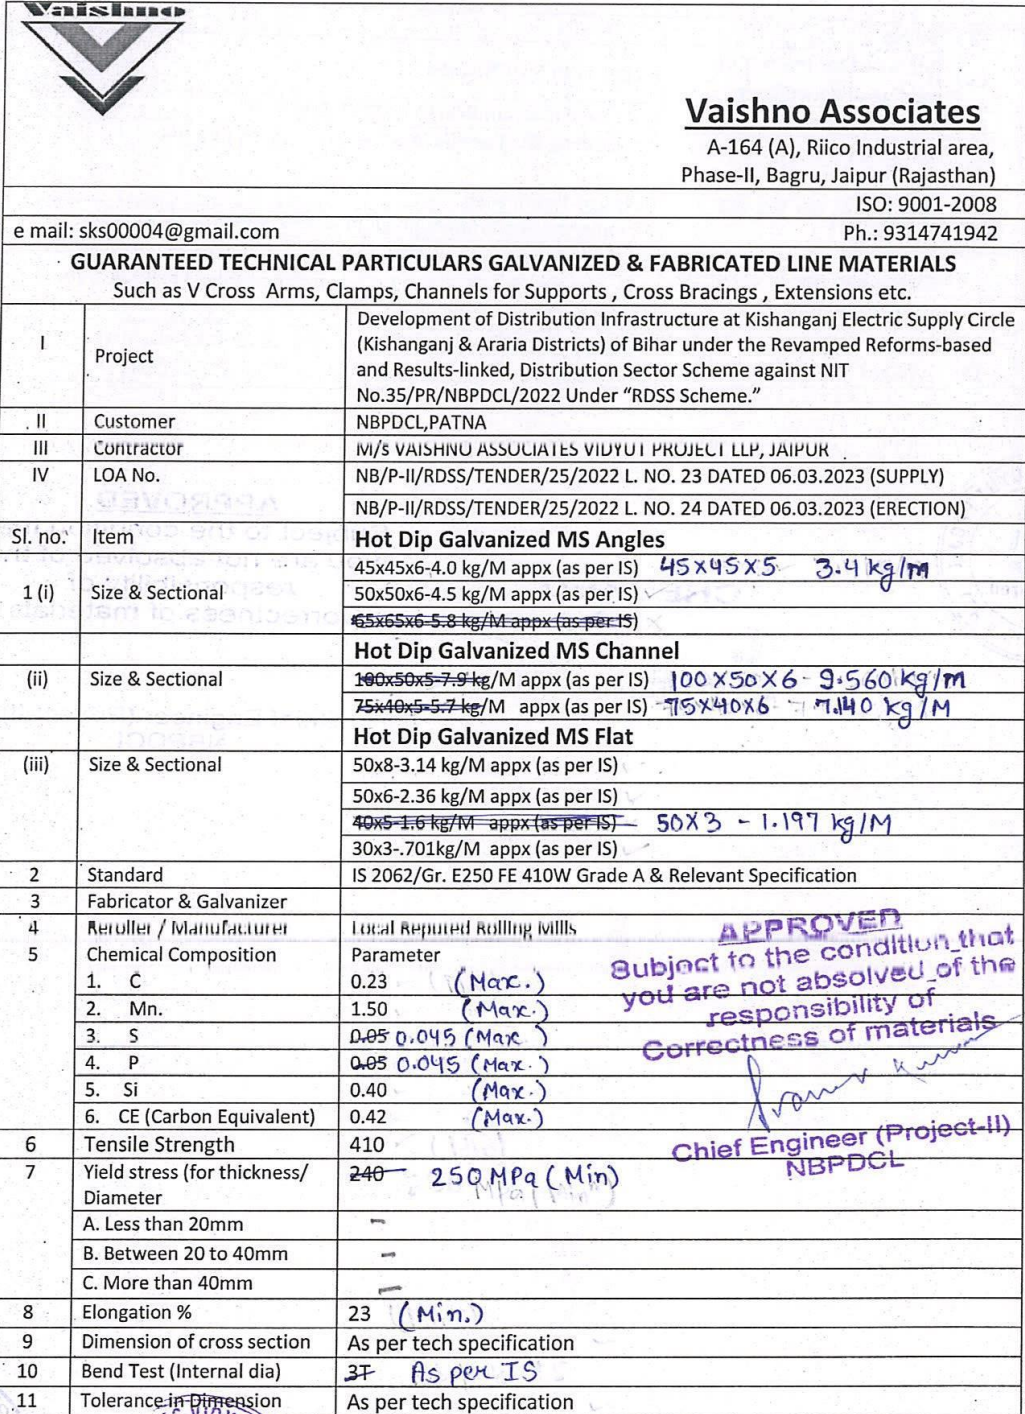 Vaishno
Vaishno Associates
A-164 (A), Riico Industrial area,
Phase-II, Bagru, Jaipur (Rajasthan)
ISO: 9001-2008
e mail: sks00004@gmail.com Ph.: 9314741942
GUARANTEED TECHNICAL PARTICULARS GALVANIZED & FABRICATED LINE MATERIALS
Such as V Cross Arms, Clamps, Channels for Supports , Cross Bracings , Extensions etc.
I Project Development of Distribution Infrastructure at Kishanganj Electric Supply Circle
(Kishanganj & Araria Districts) of Bihar under the Revamped Reforms-based
and Results-linked, Distribution Sector Scheme against NIT
No.35/PR/NBPDCL/2022 Under “RDSS Scheme.”
II Customer NBPDCL,PATNA
III Contractor M/s VAISHNO ASSOCIATES VIDYUT PROJECT LLP, JAIPUR
IV LOA No. NB/P-II/RDSS/TENDER/25/2022 L. NO. 23 DATED 06.03.2023 (SUPPLY)
NB/P-II/RDSS/TENDER/25/2022 L. NO. 24 DATED 06.03.2023 (ERECTION)
Sl. no. Item Hot Dip Galvanized MS Angles
45x45x6-4.0 kg/M appx (as per IS) 45x45x5 3.4 kg/m
1 (i) Size & Sectional 50x50x6-4.5 kg/M appx (as per IS)
65x65x6-5.8 kg/M appx (as per IS)
Hot Dip Galvanized MS Channel
(ii) Size & Sectional 100x50x5-7.9 kg/M appx (as per IS) 100x50x6 - 9.560 kg/m
75x40x5-5.7 kg/M appx (as per IS) 75x40x6 - 7.140 kg/M
Hot Dip Galvanized MS Flat
(iii) Size & Sectional 50x8-3.14 kg/M appx (as per IS)
50x6-2.36 kg/M appx (as per IS)
40x5-1.6 kg/M appx (as per IS) 50x3 - 1.197 kg/M
30x3-.701kg/M appx (as per IS)
2 Standard IS 2062/Gr. E250 FE 410W Grade A & Relevant Specification
3 Fabricator & Galvanizer
4 Reroller / Manufacturer Local Reputed Rolling Mills
5 Chemical Composition Parameter
1. C 0.23 (Max.)
2. Mn. 1.50 (Max.)
3. S 0.05 0.045 (Max )
4. P 0.05 0.045 (Max.)
5. Si 0.40 (Max.)
6. CE (Carbon Equivalent) 0.42 (Max.)
APPROVED
Subject to the condition that
you are not absolved of the
responsibility of
Correctness of materials
Chief Engineer (Project-II)
NBPDCL
6 Tensile Strength 410
7 Yield stress (for thickness/ 240 250 MPa (Min)
Diameter
A. Less than 20mm -
B. Between 20 to 40mm -
C. More than 40mm -
8 Elongation % 23 (Min.)
9 Dimension of cross section As per tech specification
10 Bend Test (Internal dia) 3T As per IS
11 Tolerance in Dimension As per tech specification